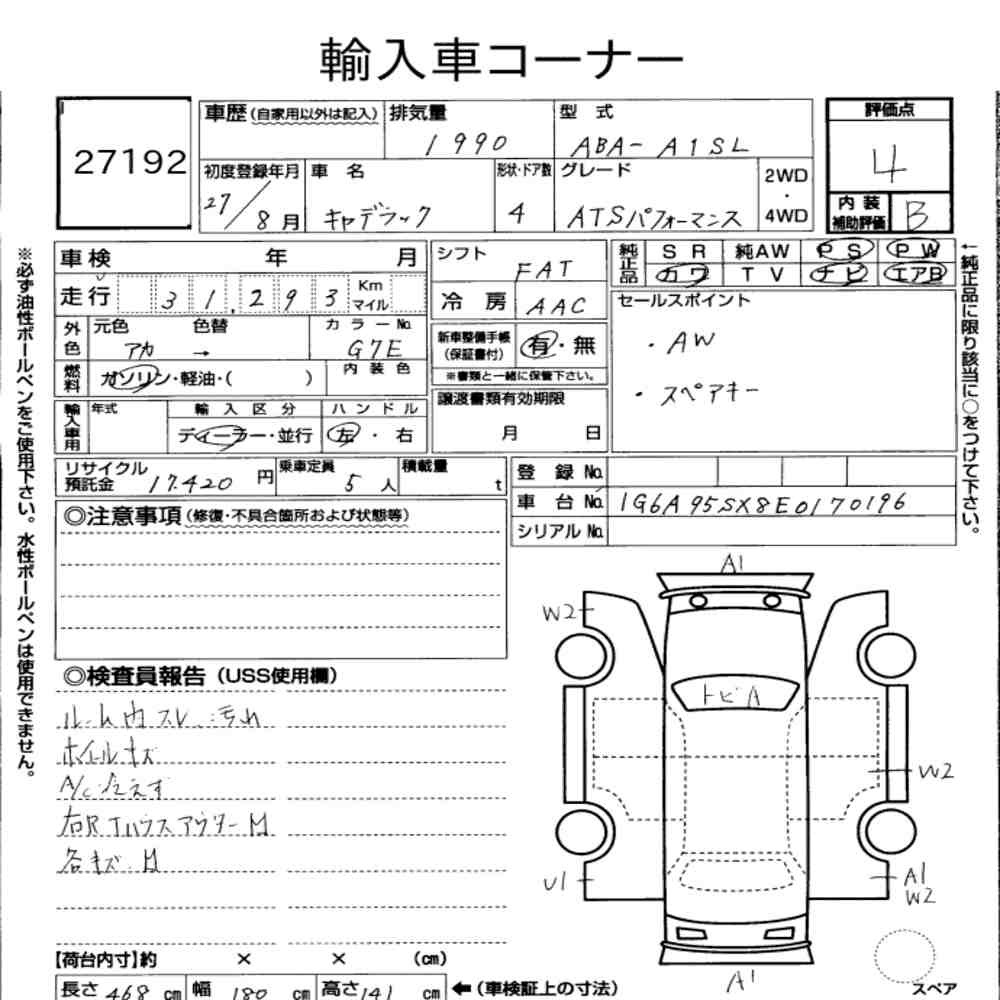 輸入車コーナー
27192
車歴(自家用以外は記入) 排気量 型式 評価点
1990 ABA-A1SL 4
初度登録年月 車名 形状・ドア数 グレード 2WD・4WD 内装補助評価 B
27/8月 キャデラック 4 ATSパフォーマンス
車検 年 月 シフト FAT
純正品 SR 純AW PS PW
カワ TV ナビ エアB
走行 31,293 Km マイル
冷房 AAC
セールスポイント
外色 元色 色替 カラーNo.
アカ → G7E
新車整備手帳(保証書付) 有・無
・AW
※書類と一緒に保管下さい。
燃料 ガソリン・軽油・( ) 内装色
譲渡書類有効期限
月 日
・スペアキー
輸入車用 年式 輸入区分 ハンドル
ディーラー・並行 左・右
リサイクル預託金 17.420円 乗車定員 5人 積載量 t
登録No.
車台No. 1G6A95SX8E0170196
シリアルNo.
◎注意事項(修復・不具合箇所および状態等)
※必ず油性ボールペンをご使用下さい。水性ボールペンは使用できません。
←純正品に限り該当に○をつけて下さい。
◎検査員報告(USS使用欄)
ルーム内スレ.汚れ
ホイールキズ
A/C冷えず
右RTハウスアウターM
各キズ.M
A1
W2
トビA
W2
U1
A1
W2
A1
スペア
【荷台内寸】約 × × (cm)
長さ 468 cm 幅 180 cm 高さ 141 cm ←(車検証上の寸法)